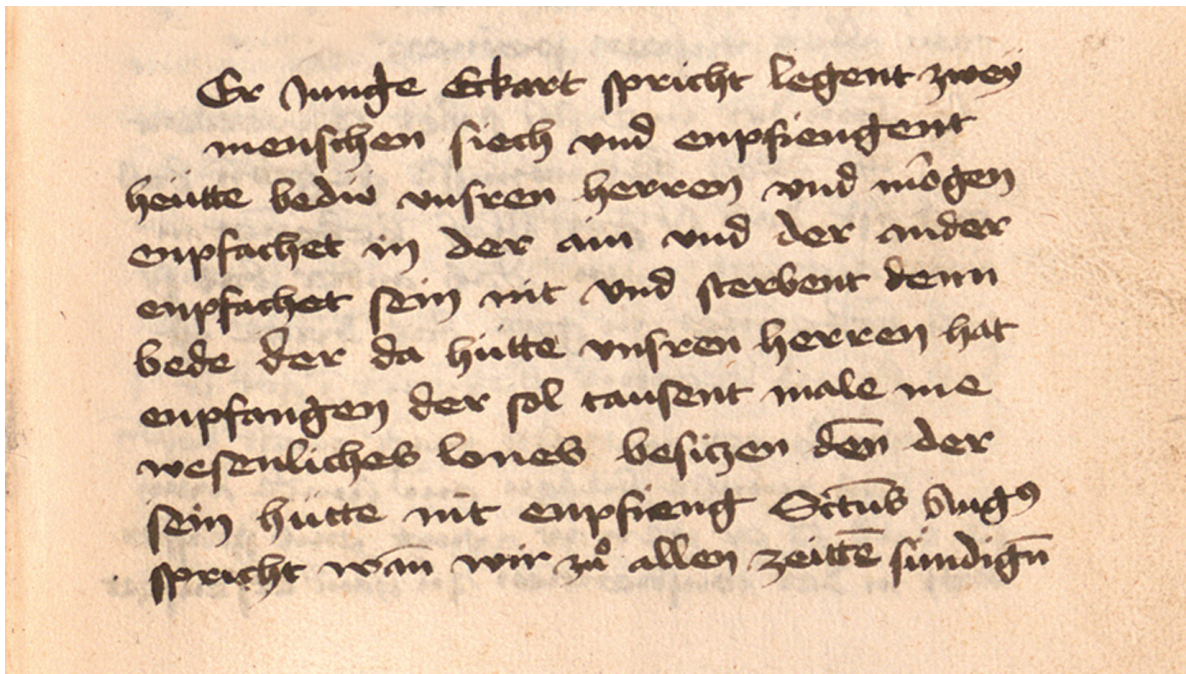 Er Junge Eckart spricht legent zweÿ
menschen siech vnd enpfiengent
heutte bediv vnsren herren vnd mo᷑gen
enpfachet in der ain vnd der ander
enpfachet sein nit vnd sterbent denn
bede der da hutte vnsren herren hat
enpfangen der sol tausent male me
wesenliches lones besitzen deñ der
sein hutte nit enpfieng Sctūs Augꝰ
spricht wañ wir zů allen zeittē sündigñ